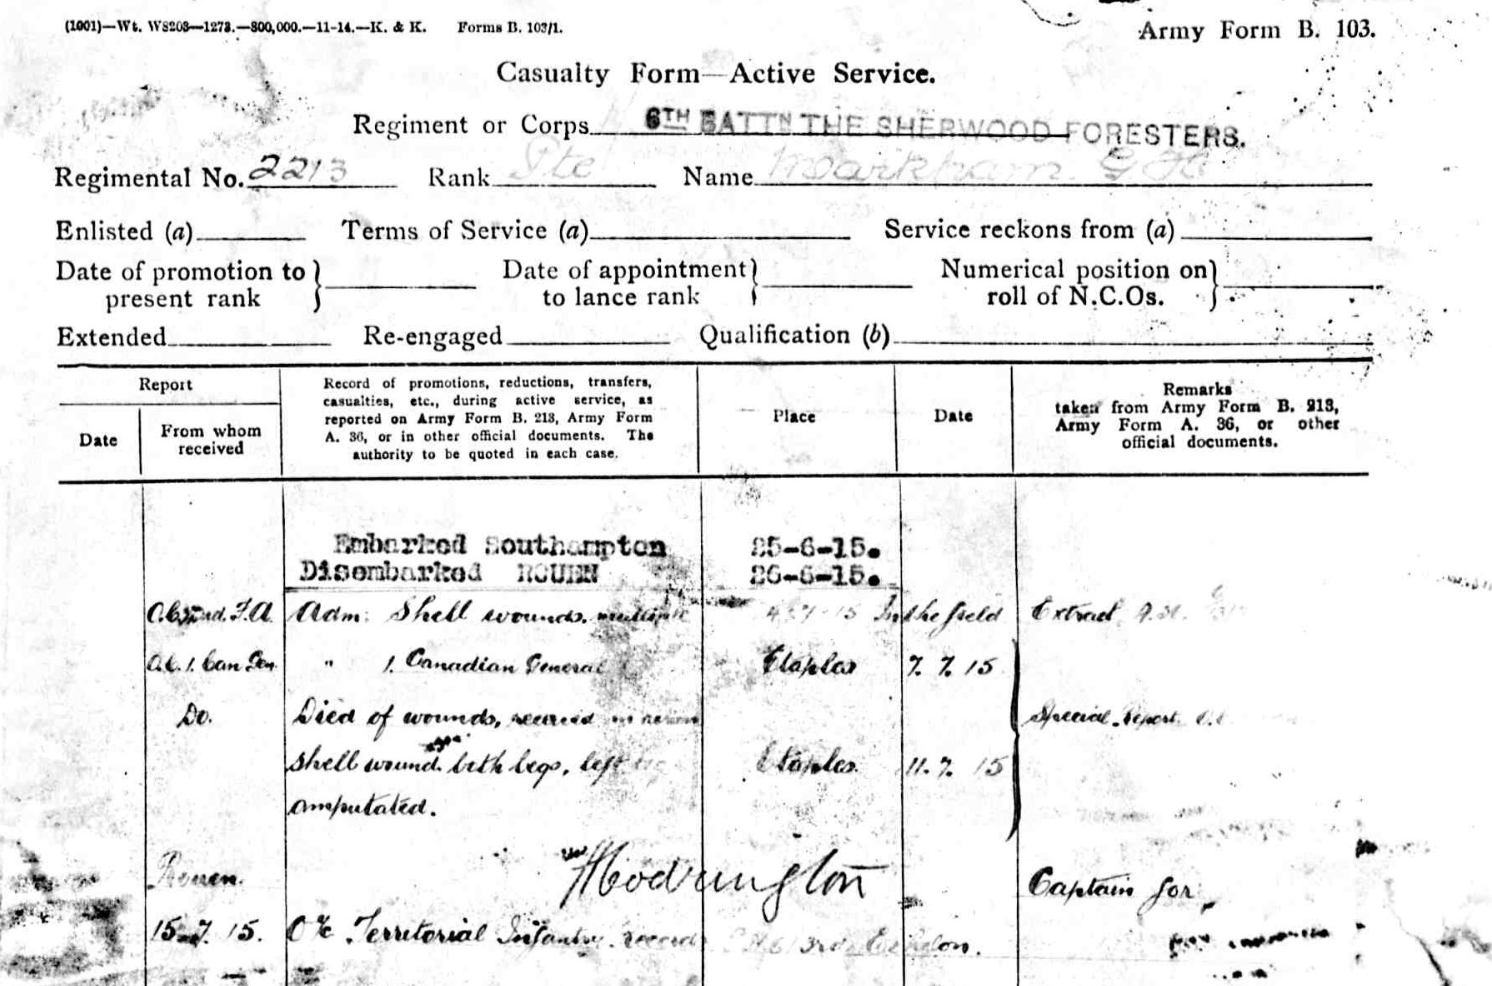 (1001)—Wt. W8208—1273.—800,000.—11-14.—K. & K. Forms B. 103/1.
Army Form B. 103.
Casualty Form—Active Service.
Regiment or Corps 6TH BATTN THE SHERWOOD FORESTERS.
Regimental No. 2213 Rank Pte Name Markham G H
Enlisted (a) Terms of Service (a) Service reckons from (a)
Date of promotion to present rank } Date of appointment to lance rank } Numerical position on roll of N.C.Os. }
Extended Re-engaged Qualification (b)
Report
Date
From whom received
Record of promotions, reductions, transfers,
casualties, etc., during active service, as
reported on Army Form B. 213, Army Form
A. 36, or in other official documents. The
authority to be quoted in each case.
Place
Date
Remarks
taken from Army Form B. 213,
Army Form A. 36, or other
official documents.
Embarked Southampton 25-6-15.
Disembarked ROUEN 26-6-15.
F.A. Adm. Shell wounds. multiple 7 15 In the field Extract
O.C. 1. Can Gen. " 1. Canadian General Etaples 7. 7. 15
Do. Died of wounds, received in Special report
shell wound both legs, left Etaples. 11. 7. 15
amputated.
Rouen. Captain for
15.7.15. O/c Territorial Infantry records 3rd Echelon.